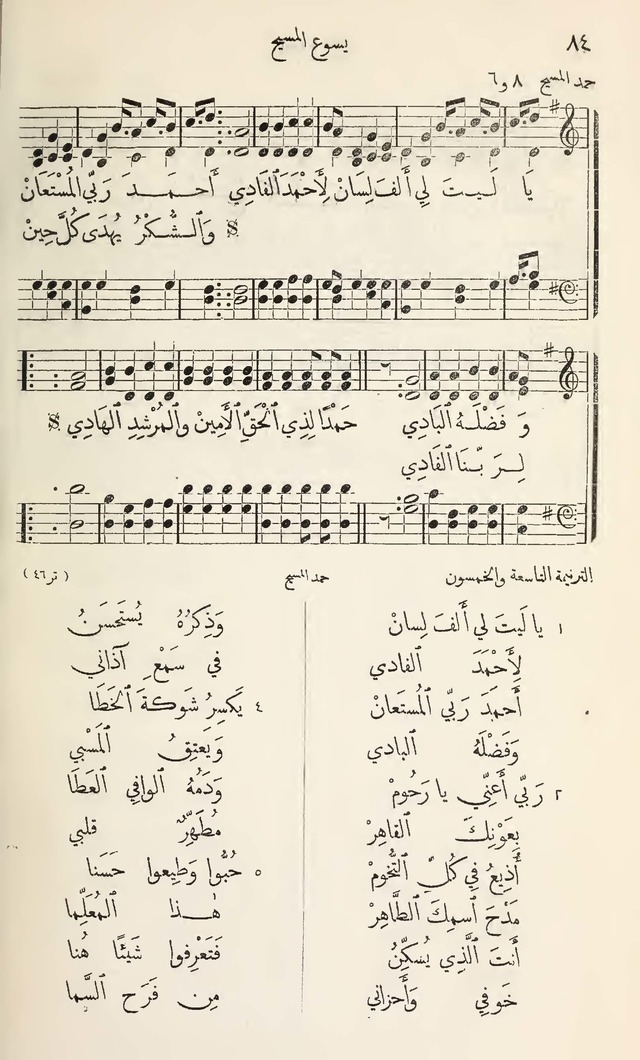 ٨٤
يسوع المسيح
حمد المسيح ٨ و٦
يا لَيتَ لِي أَلفَ لِسَانْ لِأَحْمَدَ ٱلفَادِي أَحـمـَدَ رَبِّي ٱلمُستَعَانْ
وَٱلشُّكْرُ يُهدَى كُلَّ حِينْ
وَ فَضْلَهُ ٱلبَادِي حَمدًا لِذِي ٱلْحَقِّ ٱلأَمِينْ وٱلمُرْشِدِ ٱلهَادِي
لِرَبِّنَا ٱلفَادِي
الترنيمة التاسعة والخمسون
حمد المسيح
(تر ٤٦)
١ يا لَيتَ لي أَلفَ لِسانْ
لِأَحْمَدَ ٱلفادي
أَحمَدَ رَبِّي ٱلمُستَعانْ
وَفَضْلَهُ ٱلبادي
٢ رَبِّي أَعنِّي يا رَحُومْ
بِعَونِكَ ٱلقاهِرْ
أُذِيعُ فِي كُلِّ ٱلتُّخُومْ
مَدْحَ ٱسمِكَ ٱلطَّاهِرْ
أَنتَ ٱلَّذِي يُسكِّنُ
خَوفِي وَأَحزاني
وَذِكرُهُ يُستَحسَنُ
في سَمْعِ آذاني
٤ يَكسِرُ شَوكةَ ٱلخَطَا
وَيَعتِقُ ٱلمَسْبِي
وَدَمُهُ ٱلوافِي ٱلعَطَا
مُطَهِّرٌ قلبي
٥ حُبُّوا وَطِيعوا حَسَنا
هٰذا ٱلمُعَلِّما
فَتَعْرِفوا شَيئًا هُنا
مِن فَرَحِ ٱلسَّما